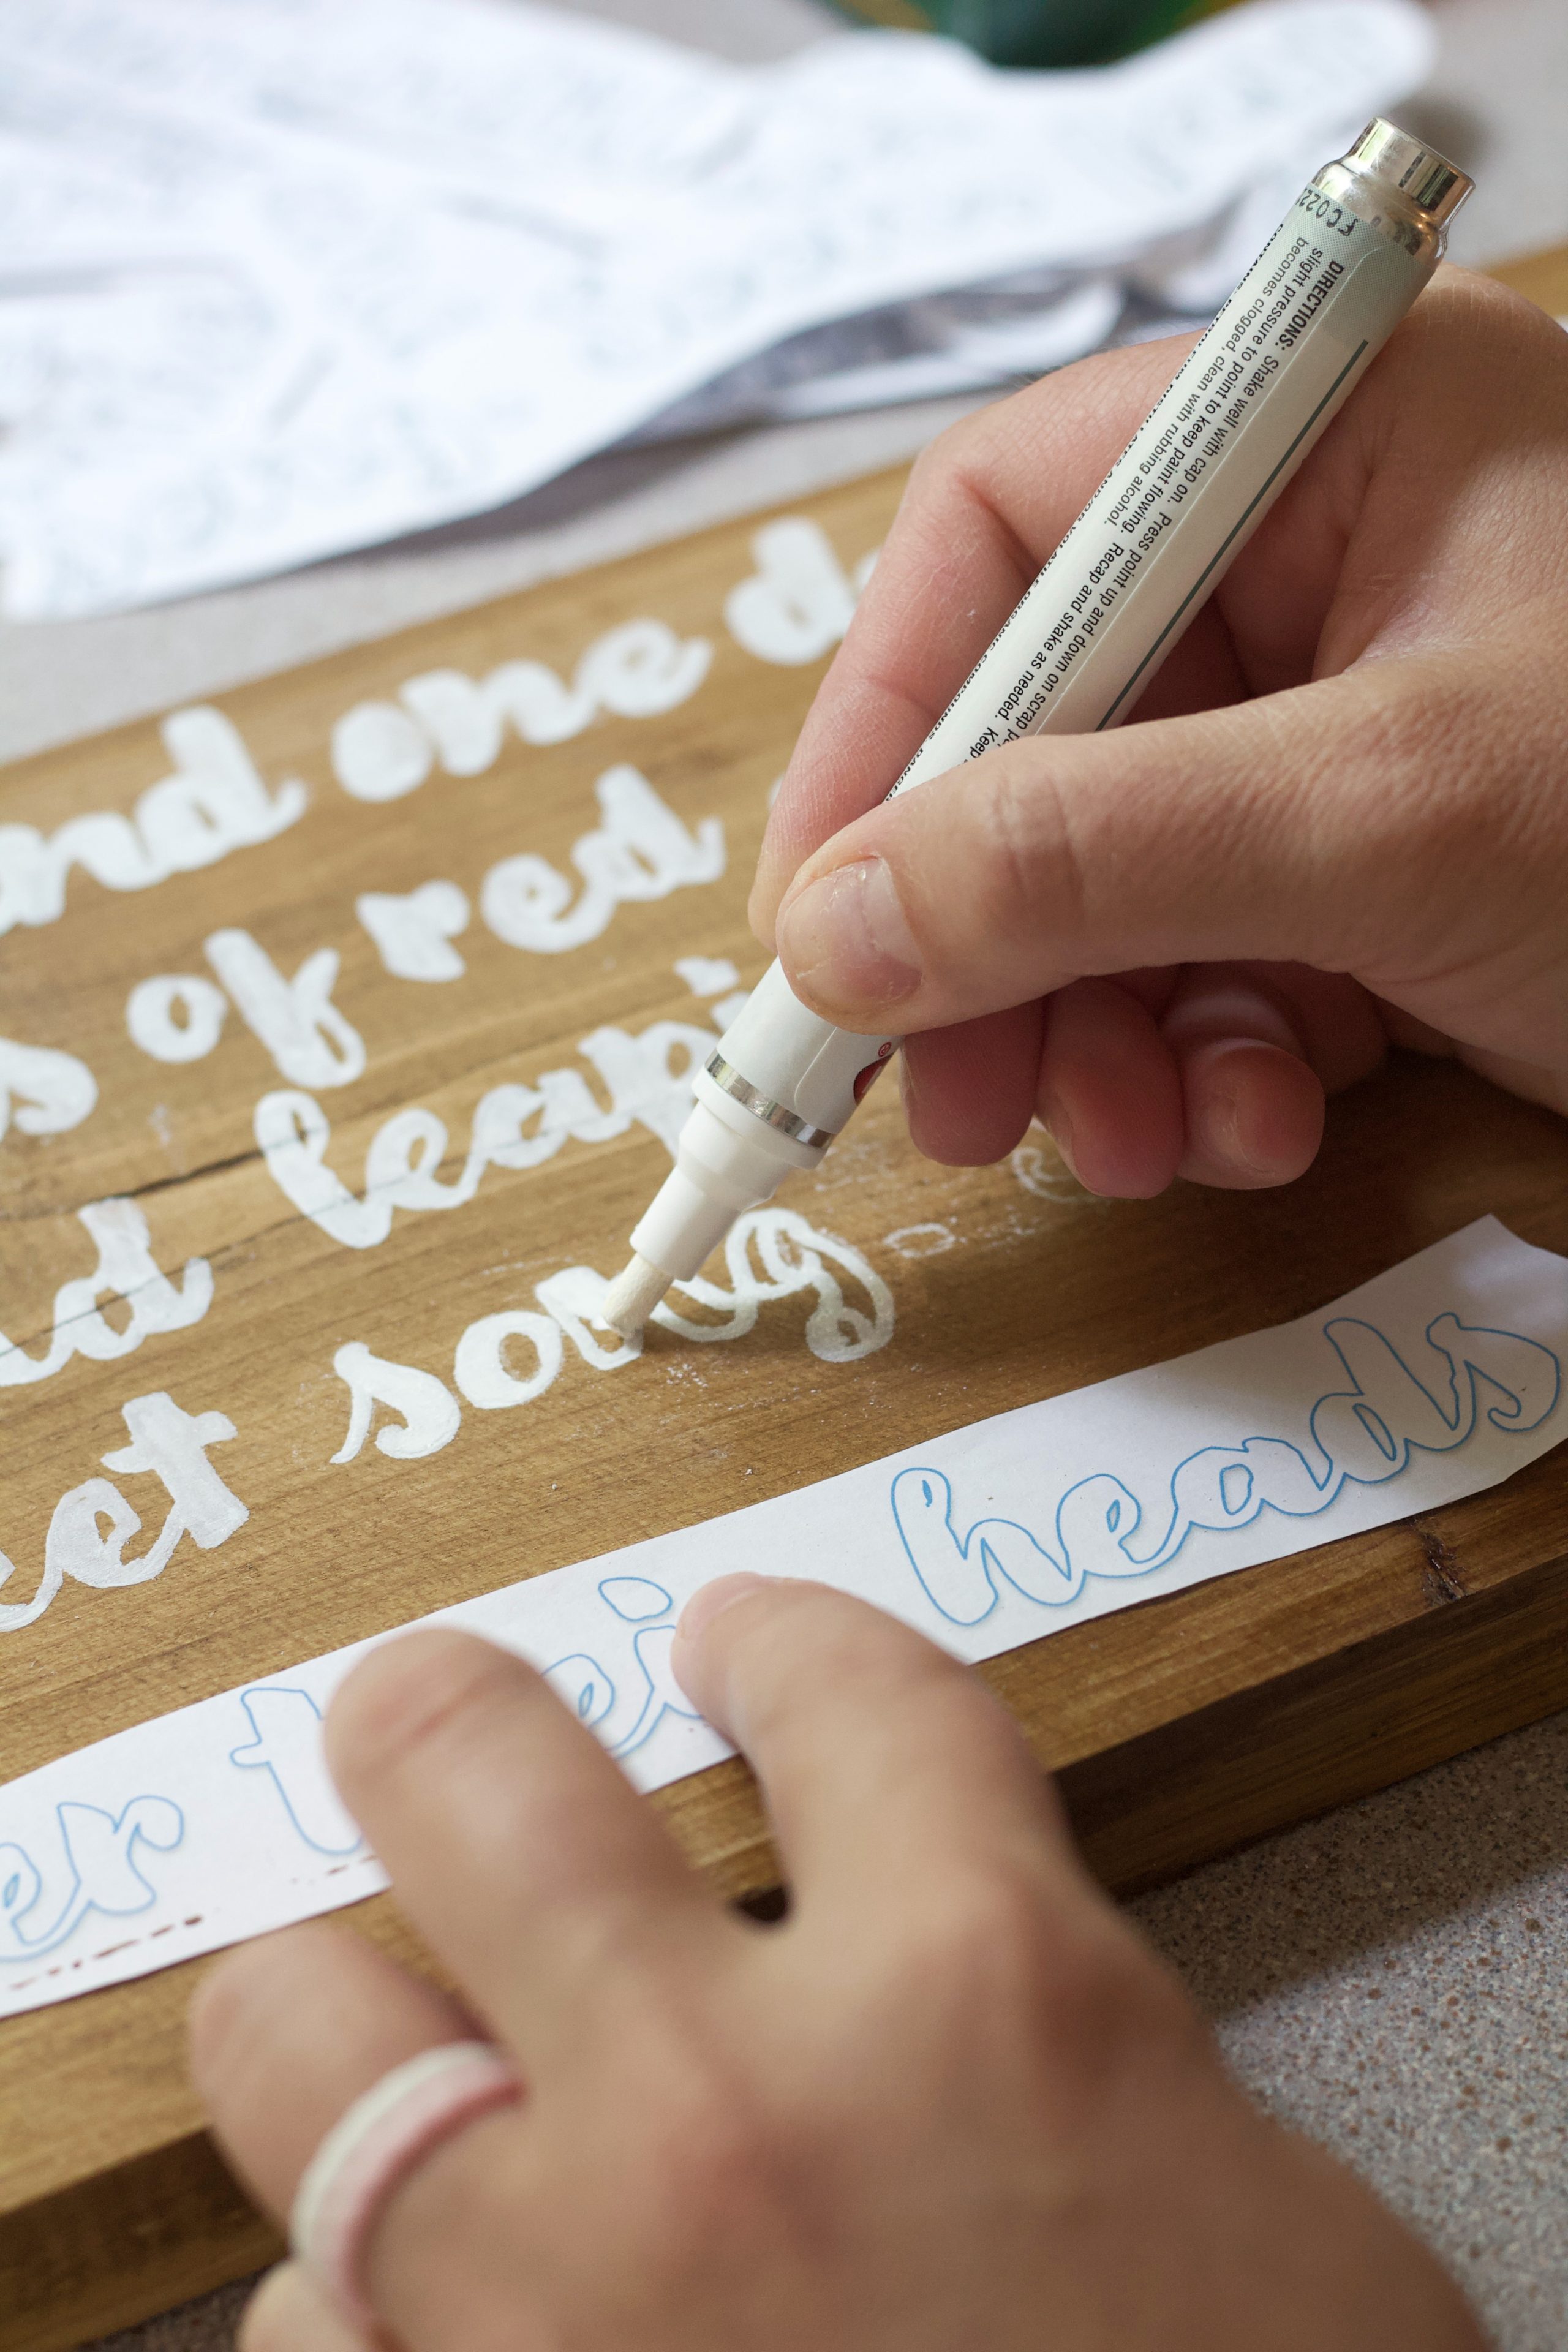 nd one d
s of red
nd leapi
et song
er thei heads
FC022
DIRECTIONS: Shake well with cap on. Press point up and down on scrap
slight pressure to point to keep paint flowing. Recap and shake as needed. Keep
becomes clogged, clean with rubbing alcohol.